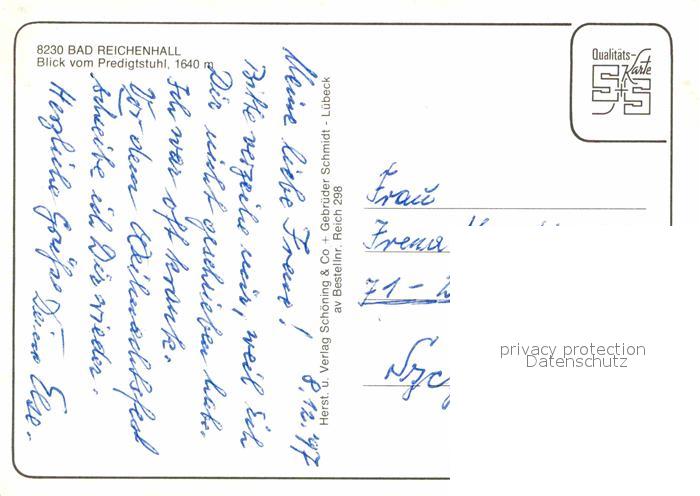 8230 BAD REICHENHALL
Blick vom Predigtstuhl, 1640 m
Meine liebe Frene! 8.12.97
Bitte verzeihe mir, weil ich
Dir nicht geschrieben habe.
Ich war oft krank.
Vor dem Weihnachtsfest
schreibe ich Dir wieder.
Herzliche Grüße Deine Else.
Herst. u. Verlag Schöning & Co + Gebrüder Schmidt - Lübeck
av Bestellnr. Reich 298
Qualitäts-
Karte
S+S
Frau
Frena
71-2
privacy protection
Datenschutz